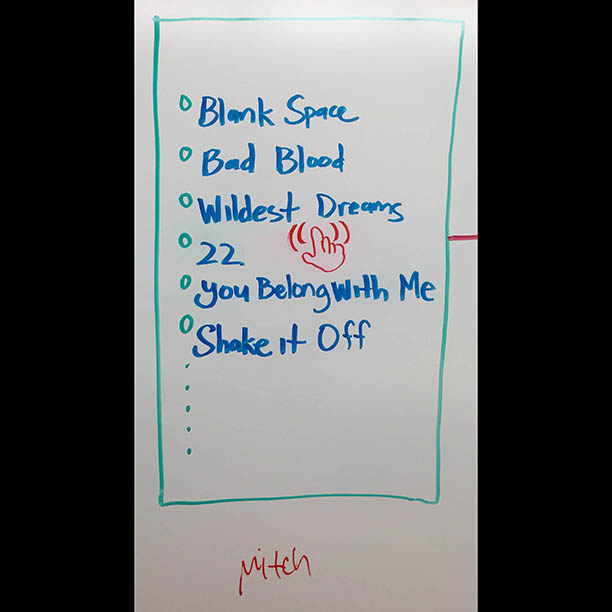 Blank Space
Bad Blood
Wildest Dreams
22
You Belong With Me
Shake it Off
mitch